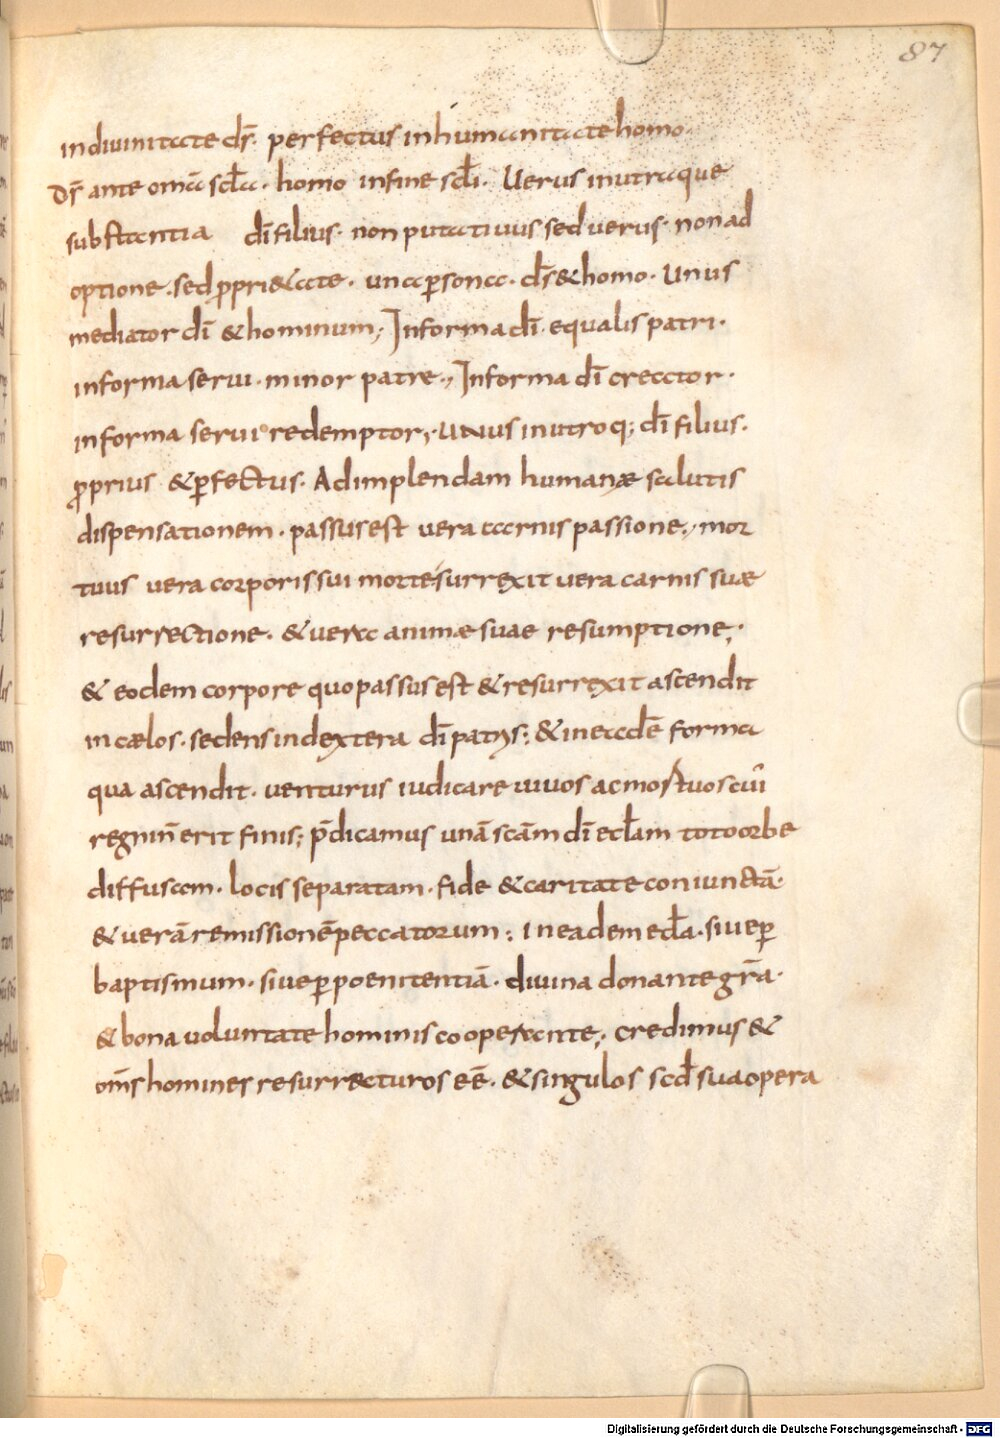 87
indiuinitate ds̄. perfectus inhumanitate homo.
Ds̄ ante omā scła. homo infine scłi. Uerus inutraque
substantia dī filius. non putatiuus sed uerus. non ad
optione. sed ꝓpri&ate. una ꝑsona. ds̄ & homo. Unus
mediator dī & hominum; Informa dī. equalis patri.
informa serui. minor patre; Informa dī creator.
informa serui redemptor; UNus inutroq; dī filius.
ꝓprius & ꝑfectus. Adimplendam humanæ salutis
dispensationem. passus est uera carnis passione; mor
tuus uera corporis sui morte surrexit uera carnis suæ
resurrectione. & uera animæ suae resumptione;
& eodem corpore quo passus est & resurrexit ascendit
in cælos. sedens indextera dī patris; & in eadē forma
qua ascendit. uenturus iudicare uiuos ac mortuos cui᾽
regnīn̄ erit finis; p̄dicamus unā scām dī ecłam toto orbe
diffusam. locis separatam. fide & caritate coniunctā.
& uerā remissionē peccatorum; In eadem ecła. siue ꝑ
baptismum. siue ꝑ poenitentiā. diuina donante grā.
& bona uoluntate hominis cooperante; credimus &
om̄s homines resurrecturos eē. & singulos scđ sua opera
Digitalisierung gefördert durch die Deutsche Forschungsgemeinschaft - DFG